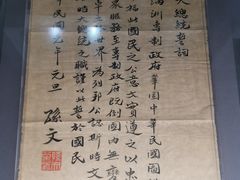 大總統誓詞
滿洲專制政府鞏固中華民國圖
此國民之公意文實遵之以忠
眾服務至專制政府既倒國內無變
於世界為列邦公認斯時文
時大總統之職謹以此誓於國民
民國元年元旦
孫文